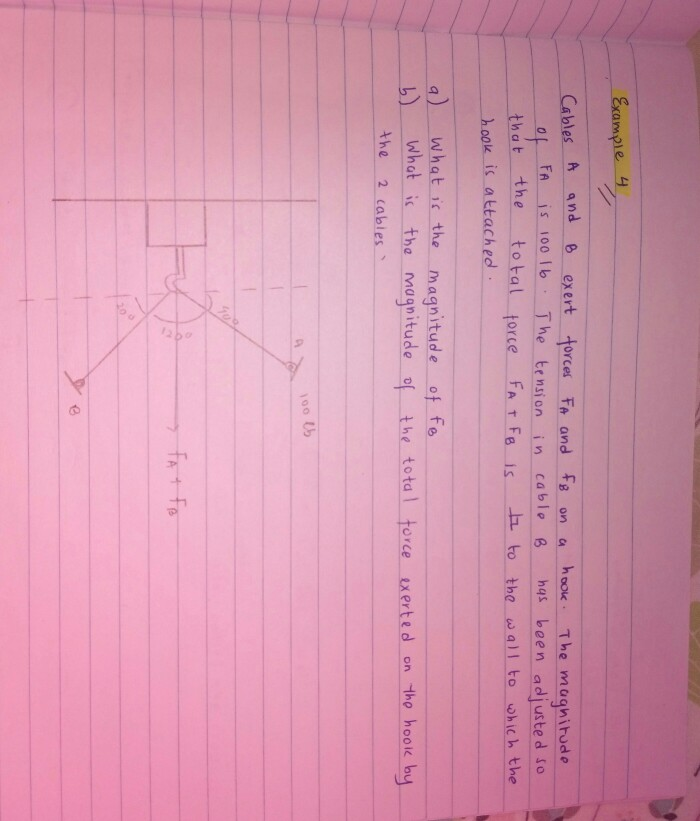 Example 4
Cables A and B exert forces FA and fB on a hook. The magnitude
of FA is 100 lb. The tension in cable B has been adjusted so
that the total force FA + FB is to the wall to which the
hook is attached.
a) What is the magnitude of fB
b) What is the magnitude of the total force exerted on the hook by
the 2 cables.
A
100 lb
40°
120°
20°
B
FA + FB